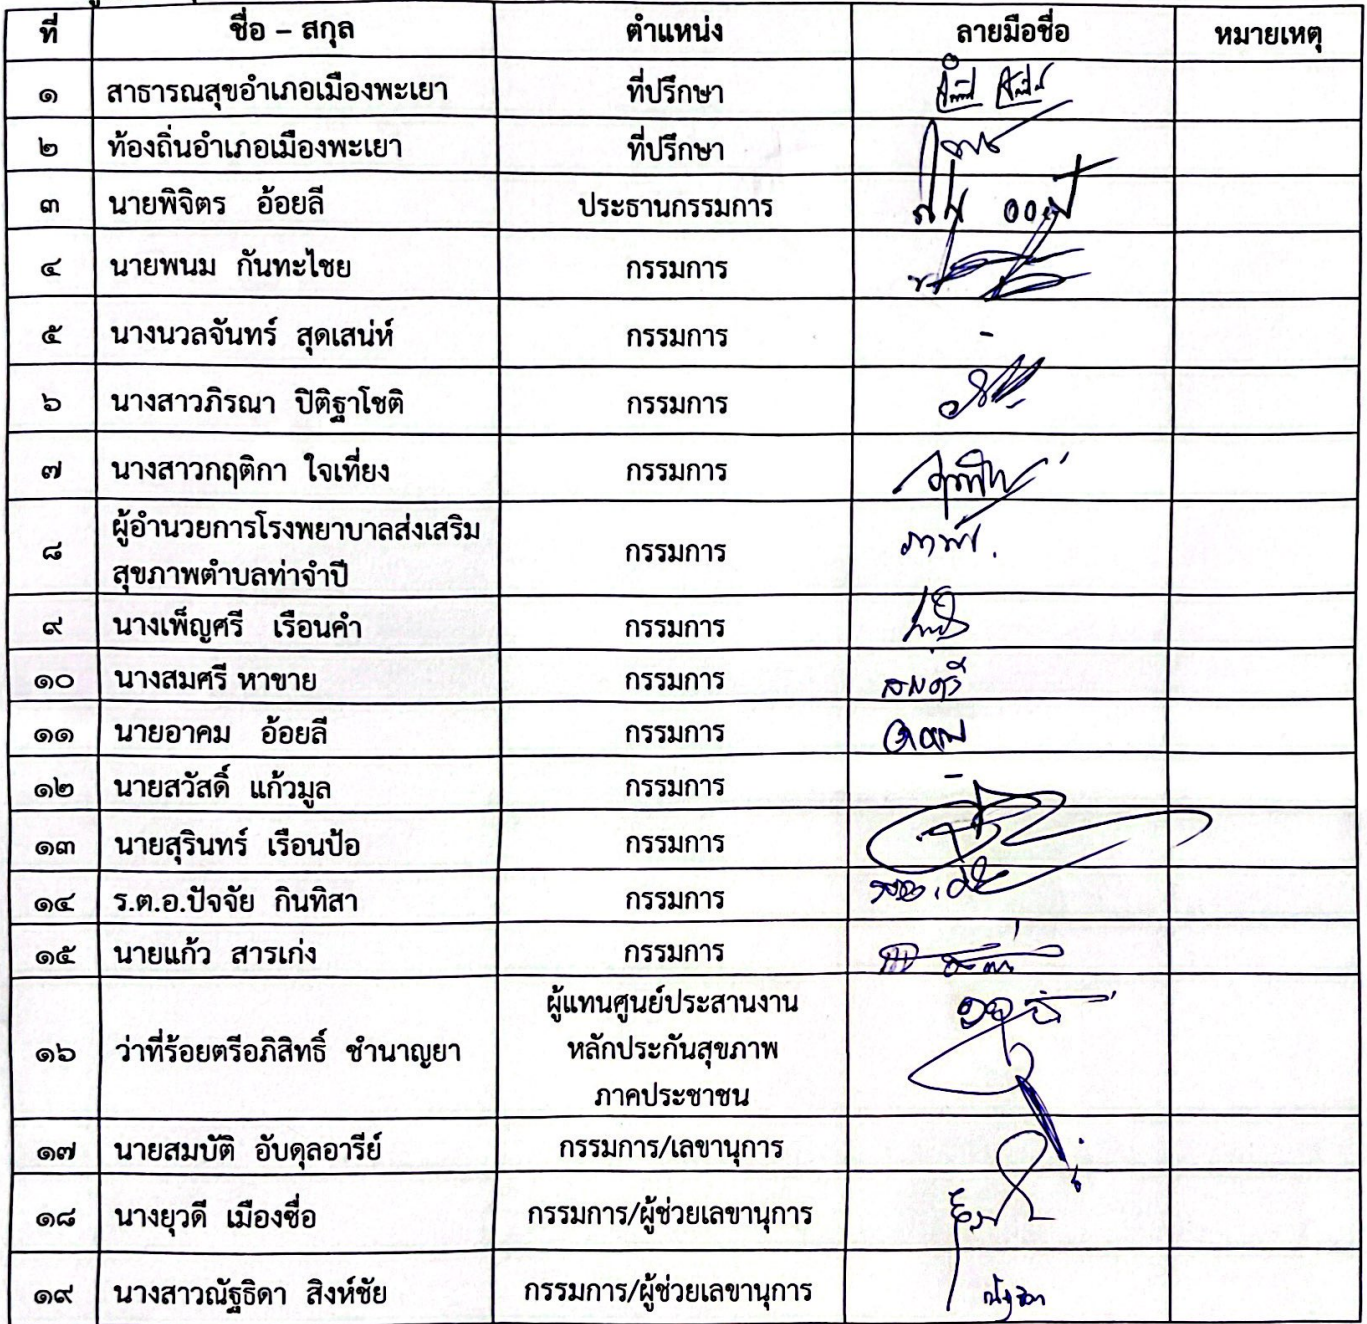 ที่ ชื่อ – สกุล ตำแหน่ง ลายมือชื่อ หมายเหตุ
๑ สาธารณสุขอำเภอเมืองพะเยา ที่ปรึกษา
๒ ท้องถิ่นอำเภอเมืองพะเยา ที่ปรึกษา
๓ นายพิจิตร อ้อยลี ประธานกรรมการ
๔ นายพนม กันทะไชย กรรมการ
๕ นางนวลจันทร์ สุดเสน่ห์ กรรมการ -
๖ นางสาวภิรณา ปิติฐาโชติ กรรมการ
๗ นางสาวกฤติกา ใจเที่ยง กรรมการ
๘ ผู้อำนวยการโรงพยาบาลส่งเสริม
สุขภาพตำบลท่าจำปี กรรมการ
๙ นางเพ็ญศรี เรือนคำ กรรมการ
๑๐ นางสมศรี หาขาย กรรมการ สมศรี
๑๑ นายอาคม อ้อยลี กรรมการ อาคม
๑๒ นายสวัสดิ์ แก้วมูล กรรมการ -
๑๓ นายสุรินทร์ เรือนป้อ กรรมการ
๑๔ ร.ต.อ.ปัจจัย กินทิสา กรรมการ
๑๕ นายแก้ว สารเก่ง กรรมการ
๑๖ ว่าที่ร้อยตรีอภิสิทธิ์ ชำนาญยา ผู้แทนศูนย์ประสานงาน
หลักประกันสุขภาพ
ภาคประชาชน
๑๗ นายสมบัติ อับดุลอารีย์ กรรมการ/เลขานุการ
๑๘ นางยุวดี เมืองซื่อ กรรมการ/ผู้ช่วยเลขานุการ
๑๙ นางสาวณัฐธิดา สิงห์ชัย กรรมการ/ผู้ช่วยเลขานุการ